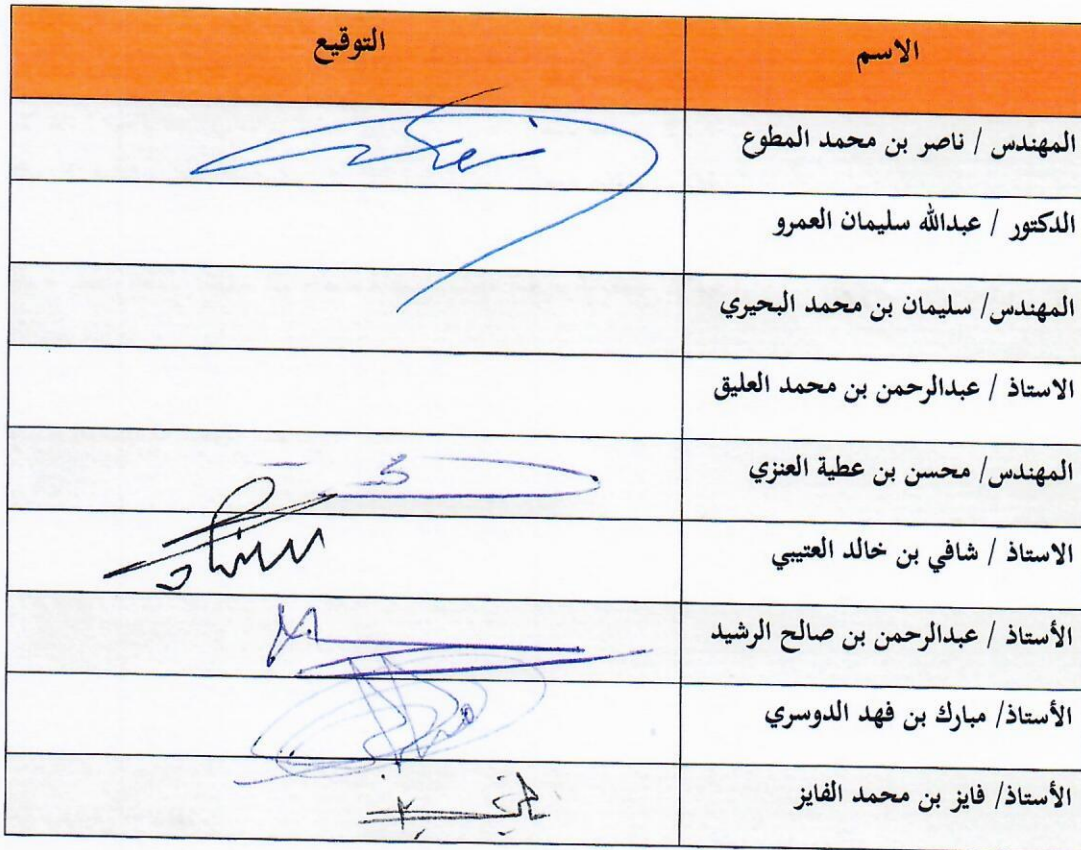 الاسم التوقيع
المهندس / ناصر بن محمد المطوع
الدكتور / عبدالله سليمان العمرو
المهندس/ سليمان بن محمد البحيري
الاستاذ / عبدالرحمن بن محمد العليق
المهندس/ محسن بن عطية العنزي
الاستاذ / شافي بن خالد العتيبي
الأستاذ / عبدالرحمن بن صالح الرشيد
الأستاذ/ مبارك بن فهد الدوسري
الأستاذ/ فايز بن محمد الفايز